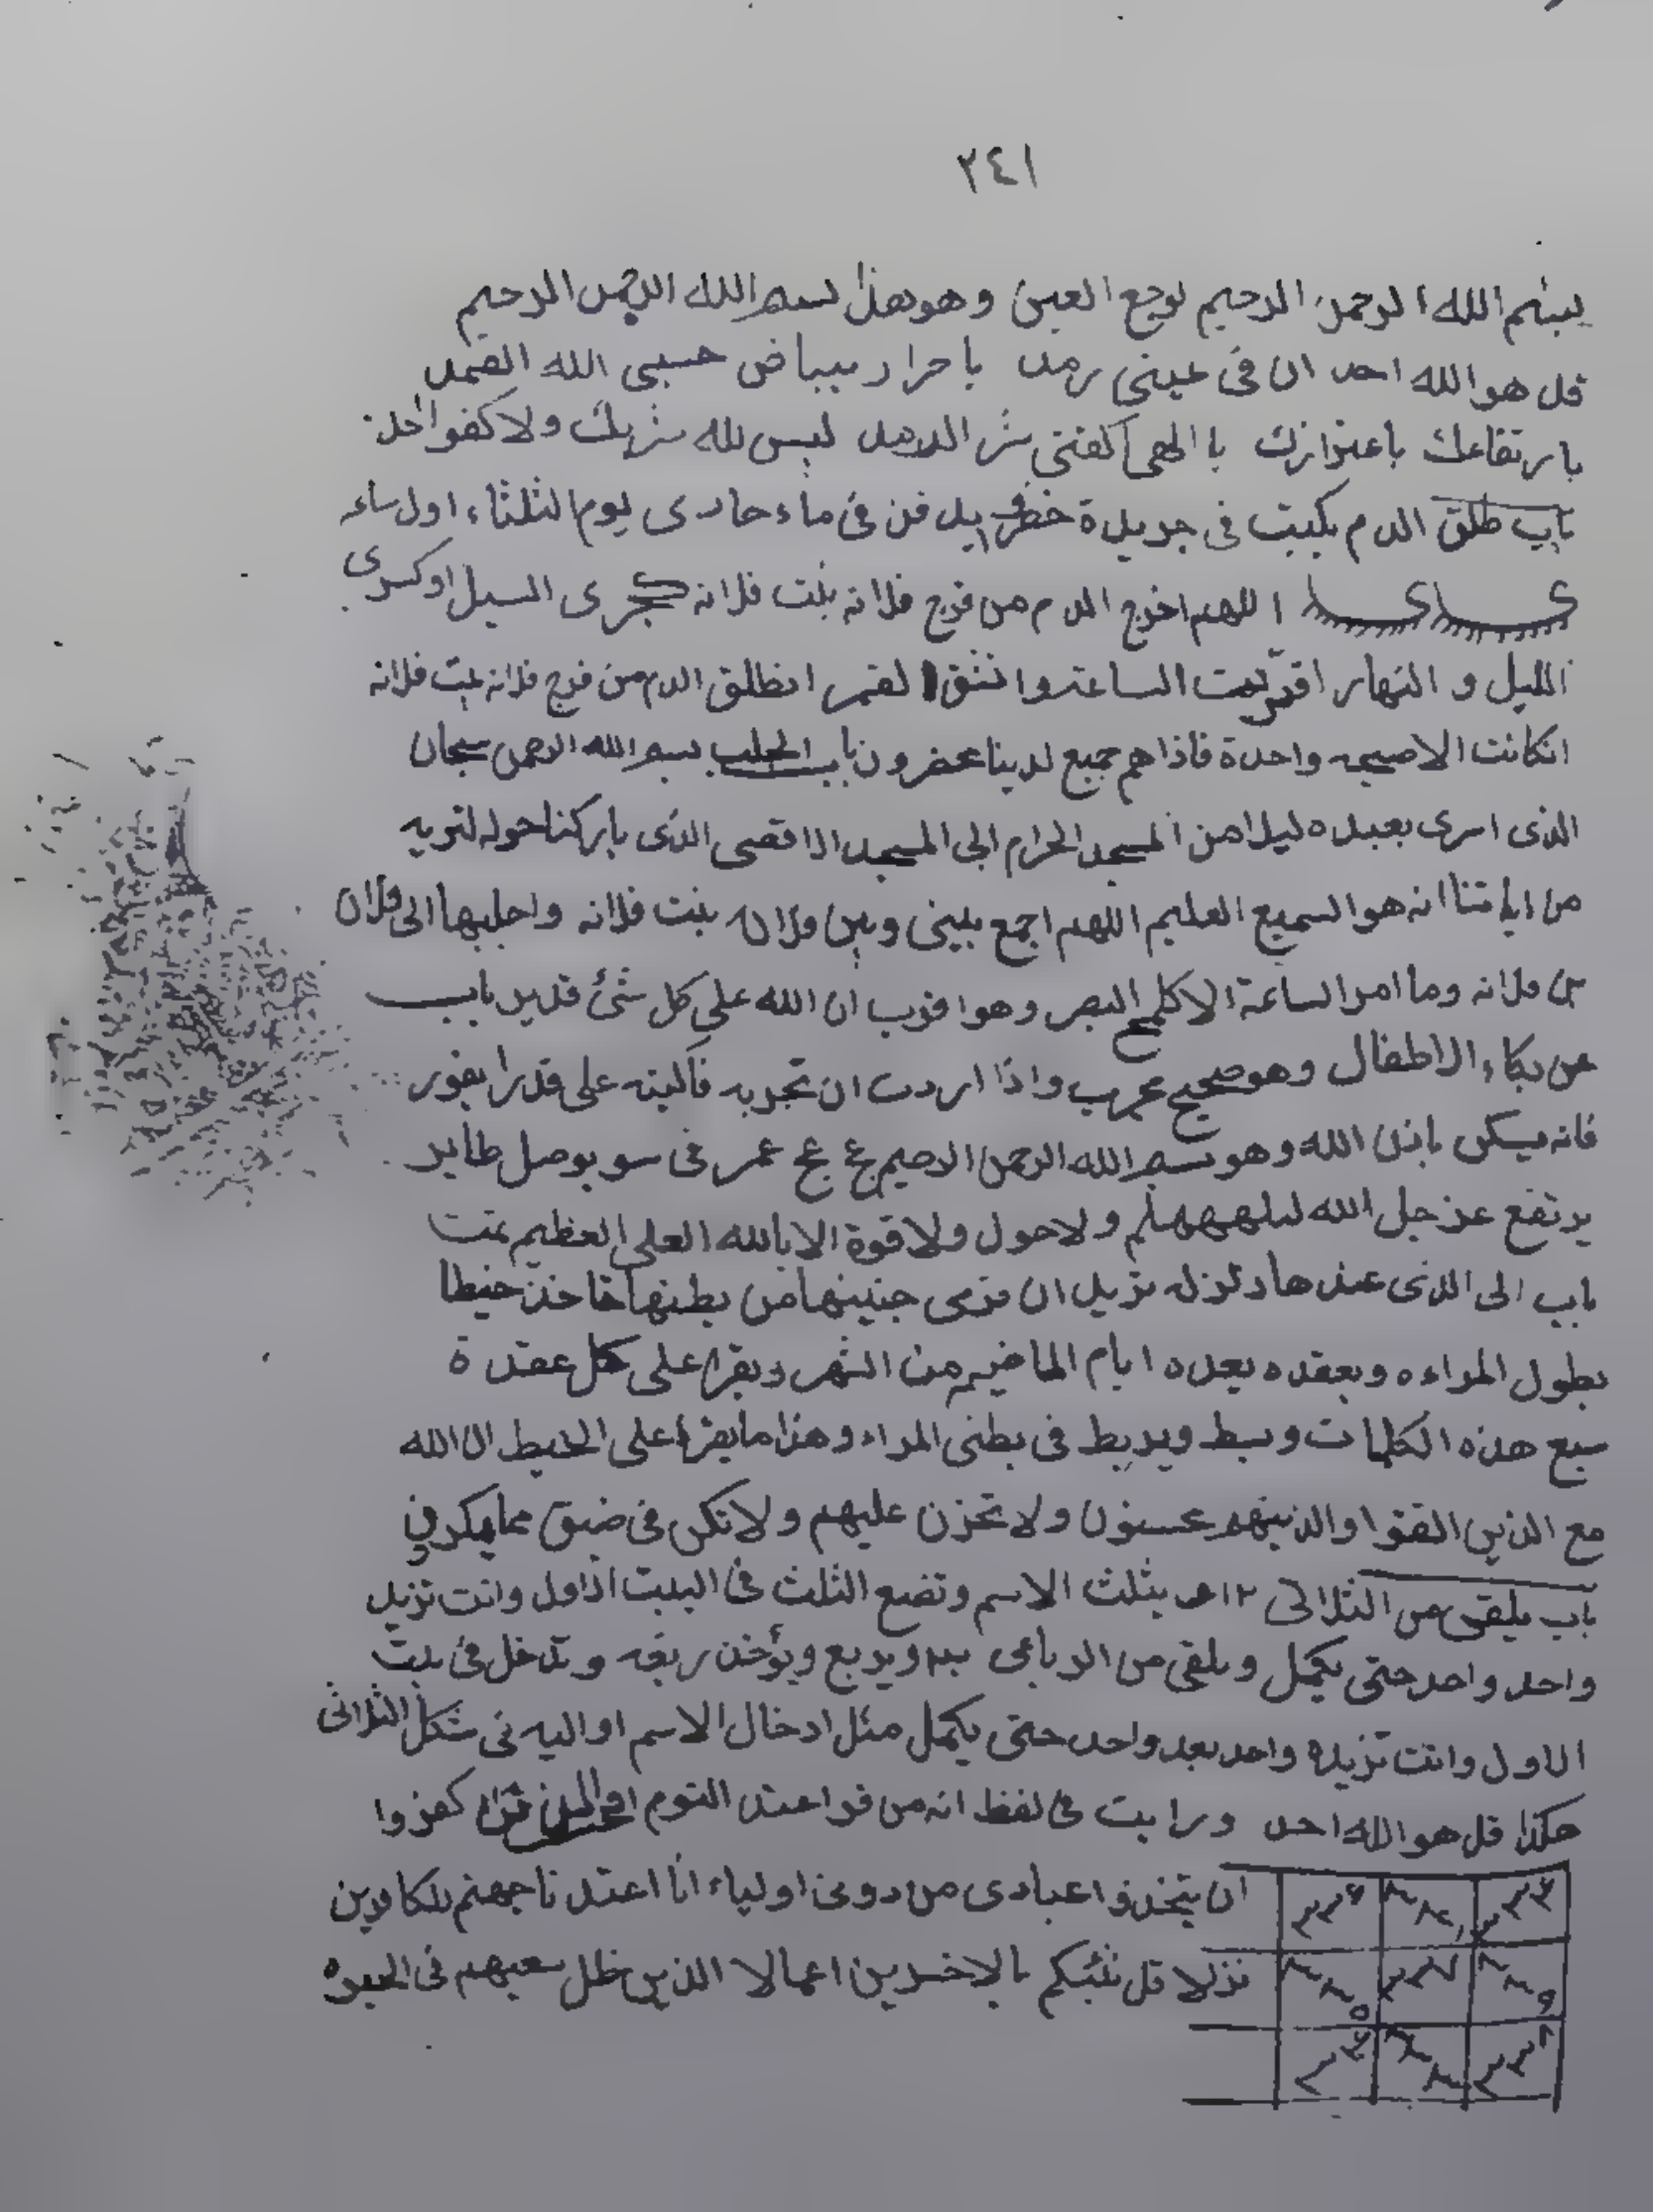 ٢٤١
بسم الله الرحمن الرحيم لوجع العين وهو هذا بسم الله الرحمن الرحيم
قل هو الله احد ان فى عينى رمد باحرار ببياض حسبى الله الصمد
بارتفاعك باعتزازك باالهى اكفنى شر الرمد ليس لله شريك ولا كفوا احد
باب طلق الدم يكتب فى جريدة خضر ويدفن فى ماء جارى يوم الثلثاء اول ساعه
اللهم اخرج الدم من فرج فلانه بنت فلانه كجرى السيل او كسرى
الليل و النهار اقتربت الساعة وانشق القمر انطلق الدم من فرج فلانه بنت فلانه
انكانت الاصيحه واحدة فاذا هم جميع لدينا محضرون باب الجلب بسم الله الرحمن سبحان
الذى اسرى بعبده ليلا من المسجد الحرام الى المسجد الاقصى الذى باركنا حوله لنريه
من اياتنا انه هو السميع العليم اللهم اجمع بينى وبين فلانه بنت فلانه واجلبها الى فلان
بن فلانه وما امر الساعة الا كلمح البصر وهو اقرب ان الله على كل شئ قدير باب
عن بكاء الاطفال وهو صحيح مجرب واذا اردت ان تجربه فاكتبه على قدرا يفور
فانه يسكن باذن الله وهو بسم الله الرحمن الرحيم عج عج عمر فى سو بوصل طاير
يرتفع عز جل الله ولا حول ولا قوة الا بالله العلى العظيم تمت
باب الى الذى عندها دلزله تريد ان ترمى جنينها من بطنها تاخذ خيطا
بطول المراءه وبعقده بعده ايام الماضيه من الشهر ويقرا على كل عقدة
سبع هذه الكلمات وسبط ويربط فى بطنى المراء وهذا ما يقرا على الخيط ان الله
مع الذين اتقوا والذينهم محسنون ولا تحزن عليهم ولا تكن فى ضيق مما يمكرون
باب يلقى من الثلاثى ١٢ بثلث الاسم وتضع الثلث فى البيت الاول وانت تزيد
واحد واحد حتى يكمل ويلقى من الرباعى ويربع ويؤخذ ربعه وتدخل فى بيت
الاول وانت تزيده واحد بعد واحد حتى يكمل مثل ادخال الاسم او اليه فى شكل الثلاثى
هكذا قل هو الله احد ورايت فى لفظ انه من قرا عند النوم كفروا
ان يتخذوا عبادى من دونى اولياء انا اعتدنا جهنم للكافرين
نزلا قل ننبئكم بالاخسرين اعمالا الذين ظل سعيهم فى الحيوه